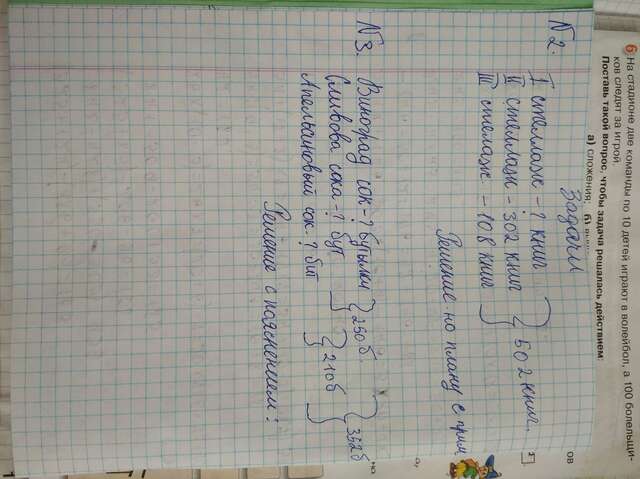 6 На стадионе две команды по 10 детей играют в волейбол, а 100 болельщи-
ков следят за игрой.
Поставь такой вопрос, чтобы задача решалась действием:
а) сложения;
Задачи
№2.
I стеллаж - ? книг
II стеллаж - 302 книг
III стелаж - 108 книг
502 книг.
Решение но плану с прим
№3.
Виноград сок - ? бутылки
Сливова сока - ? бут
Апельсиновый сок - ? бут
250б
210б
352б
Решение с паяснением: